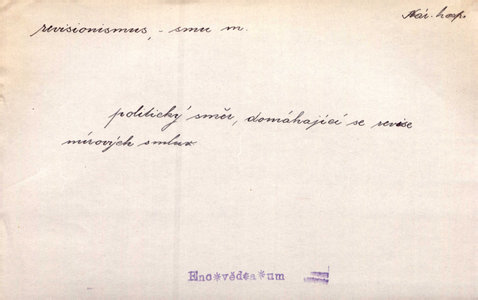 Nár. hosp.
revisionismus, -smu m.
politický směr, domáhající se revise
mírových smluv
Enc*věd*a*um